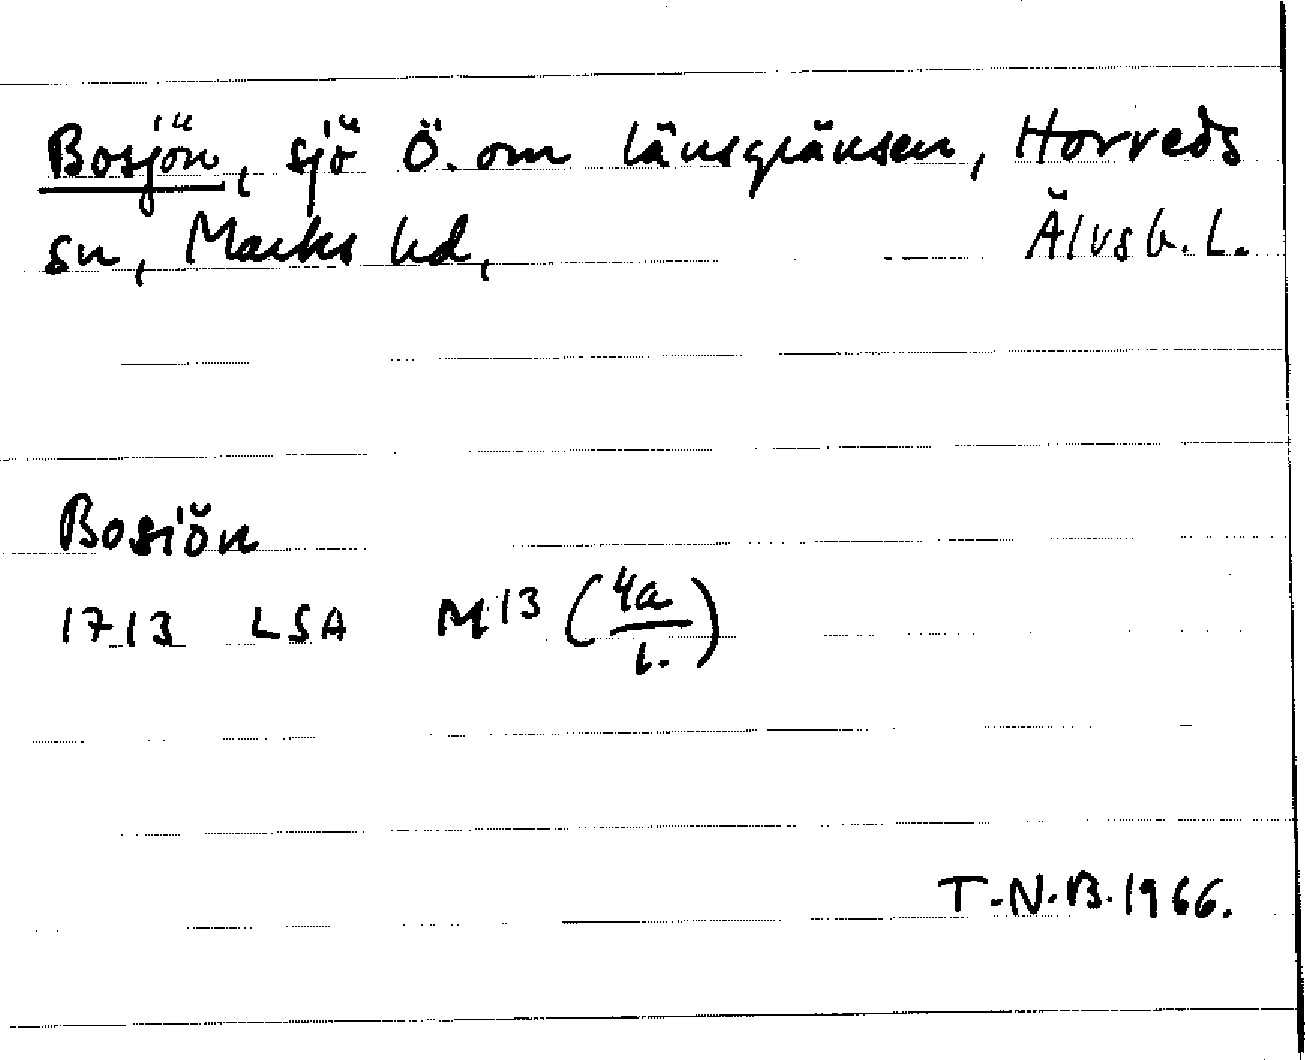 Bosjön, sjö Ö. om länsgränsen, Horreds
sn, Marks hd, Älvsb. L.
Bosiön
1713 LSA M 13 (4a/1.)
T.N.B. 1966.